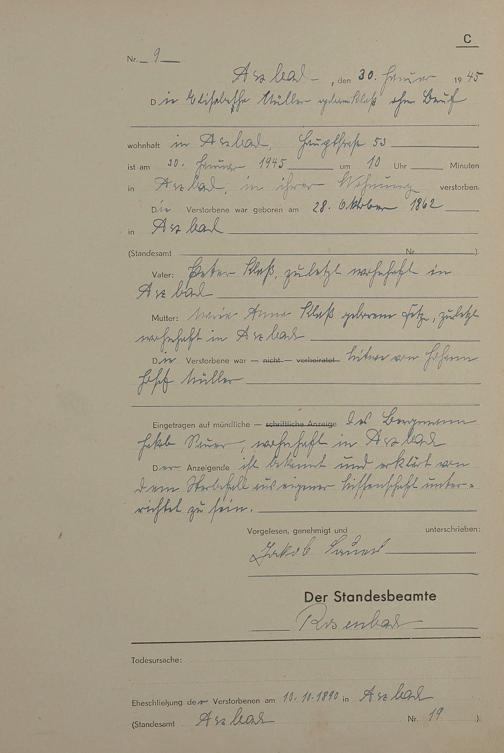 C
Nr. 9
Asbach, den 30. Januar 1945
Die Elisabetha Müller geborene Klaß ohne Beruf
wohnhaft in Asbach, Hauptstraße 53
ist am 30. Januar 1945 um 10 Uhr Minuten
in Asbach, in ihrer Wohnung verstorben.
Die Verstorbene war geboren am 28. Oktober 1862
in Asbach
(Standesamt Nr. ).
Vater: Peter Klaß, zuletzt wohnhaft in
Asbach
Mutter: Anna Klaß geborene, zuletzt
wohnhaft in Asbach
Die Verstorbene war — nicht — verheiratet Witwe von Johann
Josef Müller
Eingetragen auf mündliche — schriftliche Anzeige des Bergmann
Jakob Sauer, wohnhaft in Asbach
Der Anzeigende ist bekannt und erklärt von
dem Sterbefall aus eigener Wissenschaft unter-
richtet zu sein.
Vorgelesen, genehmigt und unterschrieben:
Jakob Sauer
Der Standesbeamte
Todesursache:
Eheschließung der Verstorbenen am 10.1890 in Asbach
(Standesamt Asbach Nr. 19 ).